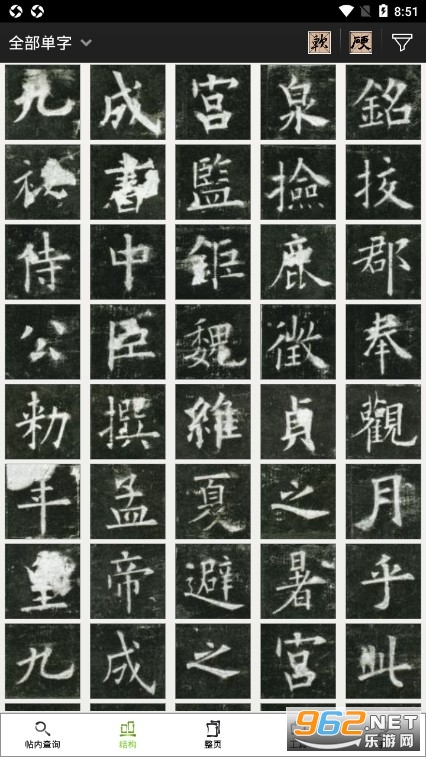 8:51
全部单字 軟 硬
九成宮泉銘
秘書監撿挍
侍中鉅鹿郡
公臣魏徵奉
勅撰維貞觀
年孟夏之月
皇帝避暑乎
九成之宮此
帖内查询 结构 整页
962.NET
乐游网